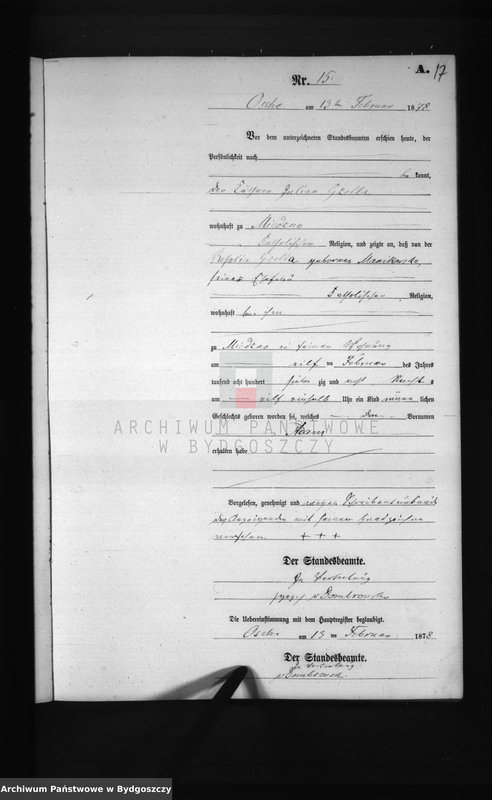 A. 17
Nr. 15
Osche am 13 ten Februar 1878
Vor dem unterzeichneten Standesbeamten erschien heute, der
Persönlichkeit nach
bekannt,
der Käthner Julian Gzella
wohnhaft zu Miedzno
katholischer Religion, und zeigte an, daß von der
Rosalia Gzella geborenen Manikowska,
seiner Ehefrau
katholischer Religion,
wohnhaft bei ihm
zu Miedzno in seiner Wohnung
am elf ten Februar des Jahres
tausend acht hundert sieben zig und acht Nachts
um elf einhalb Uhr ein Kind männ lichen
Geschlechts geboren worden sei, welches den Vornamen
erhalten habe
Vorgelesen, genehmigt und wegen Schreibensunkunde
des Anzeigenden mit seinem Handzeichen
versehen + + +
Der Standesbeamte.
In Vertretung
gez. v Dombrowski
Die Uebereinstimmung mit dem Hauptregister beglaubigt.
Osche am 13 ten Februar 1878
Der Standesbeamte.
In Vertretung
v Dombrowski
ARCHIWUM PAŃSTWOWE
W BYDGOSZCZY
Archiwum Państwowe w Bydgoszczy